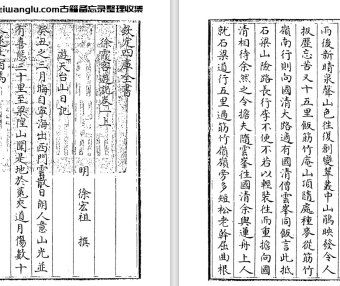 eiwanglu.com古籍备忘录整理收集
欽定四庫全書
徐霞客遊記卷一上
明 徐宏祖 撰
遊天台山日記
癸丑之三月晦自寧海出西門雲散日朗人意山光並
有喜態三十里至梁隍山聞是地於菟夾道月傷數十
雨後新晴泉聲山色往復創變翠叢中山鵑映發令人
攀歷忘苦又十五里飯筋竹庵山頂隨處種麥從筋竹
嶺南行則向國清大路適有國清僧雲峯同飯言此抵
石梁山險路長行李不便不若以輕裝往而重擔向國
清相待余然之令擔夫隨雲峯往國清余與蓮舟上人
就石梁道行五里過筋竹嶺嶺旁多短松老幹屈曲根